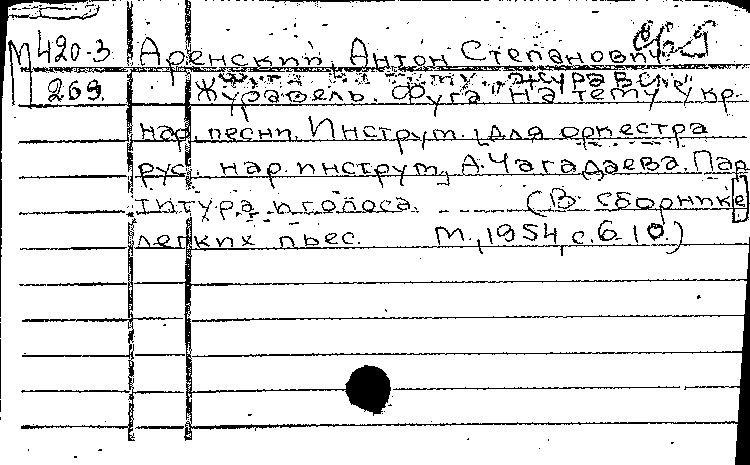 М 420-3 Аренский, Антон Степанович
269 Журавель. Фуга на тему укр.
нар. песни. Инструм. для оркестра
рус. нар. инструм. А. Чагадаева. Пар
титура и голоса. (В сборнике
легких пьес. М., 1954, с. 6-10.)